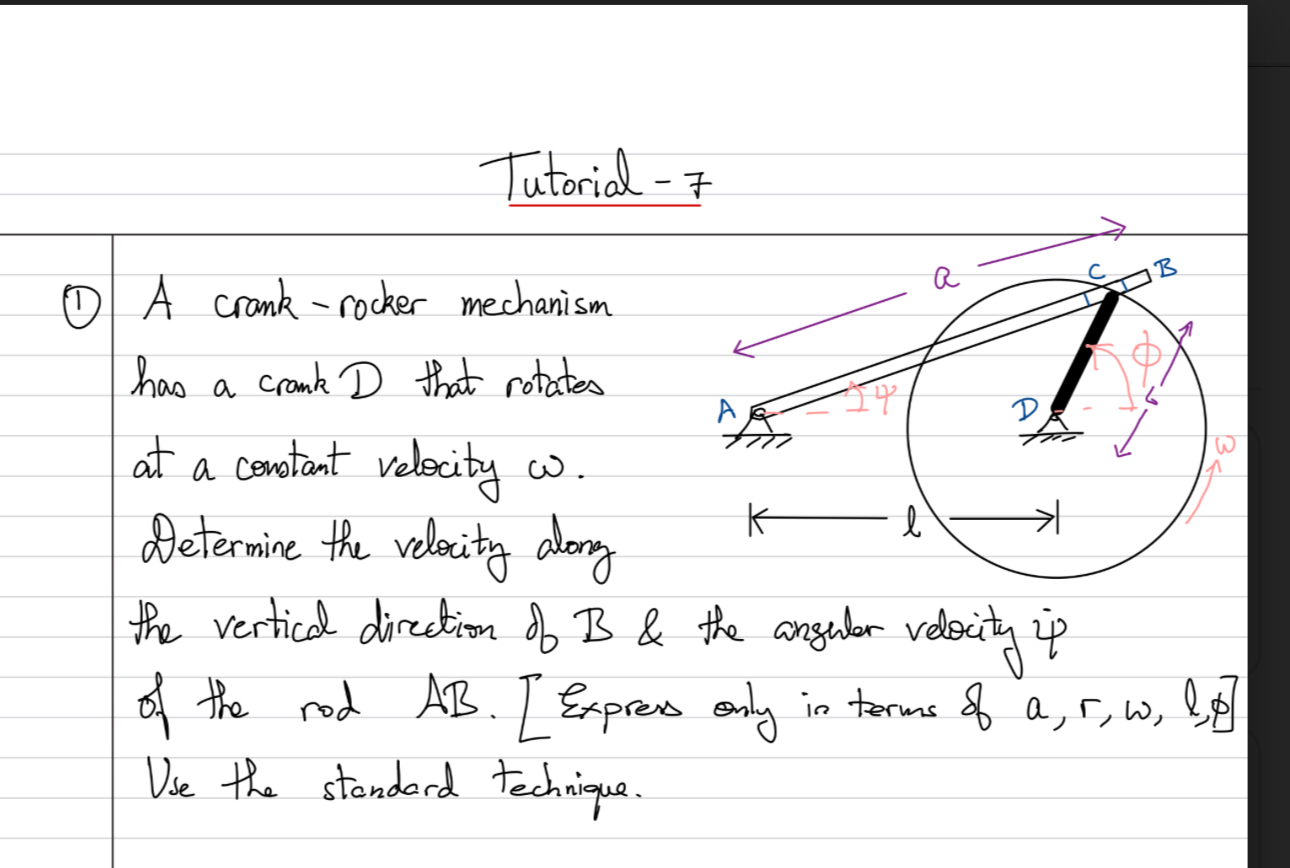 Tutorial - 7
① A crank - rocker mechanism
has a crank D that rotates
at a constant velocity ω.
Determine the velocity along
the vertical direction of B & the angular velocity ψ̇
of the rod AB. [Express only in terms of a, r, ω, l, φ]
Use the standard technique.
a
C
B
A
ψ
D
φ
ω
l